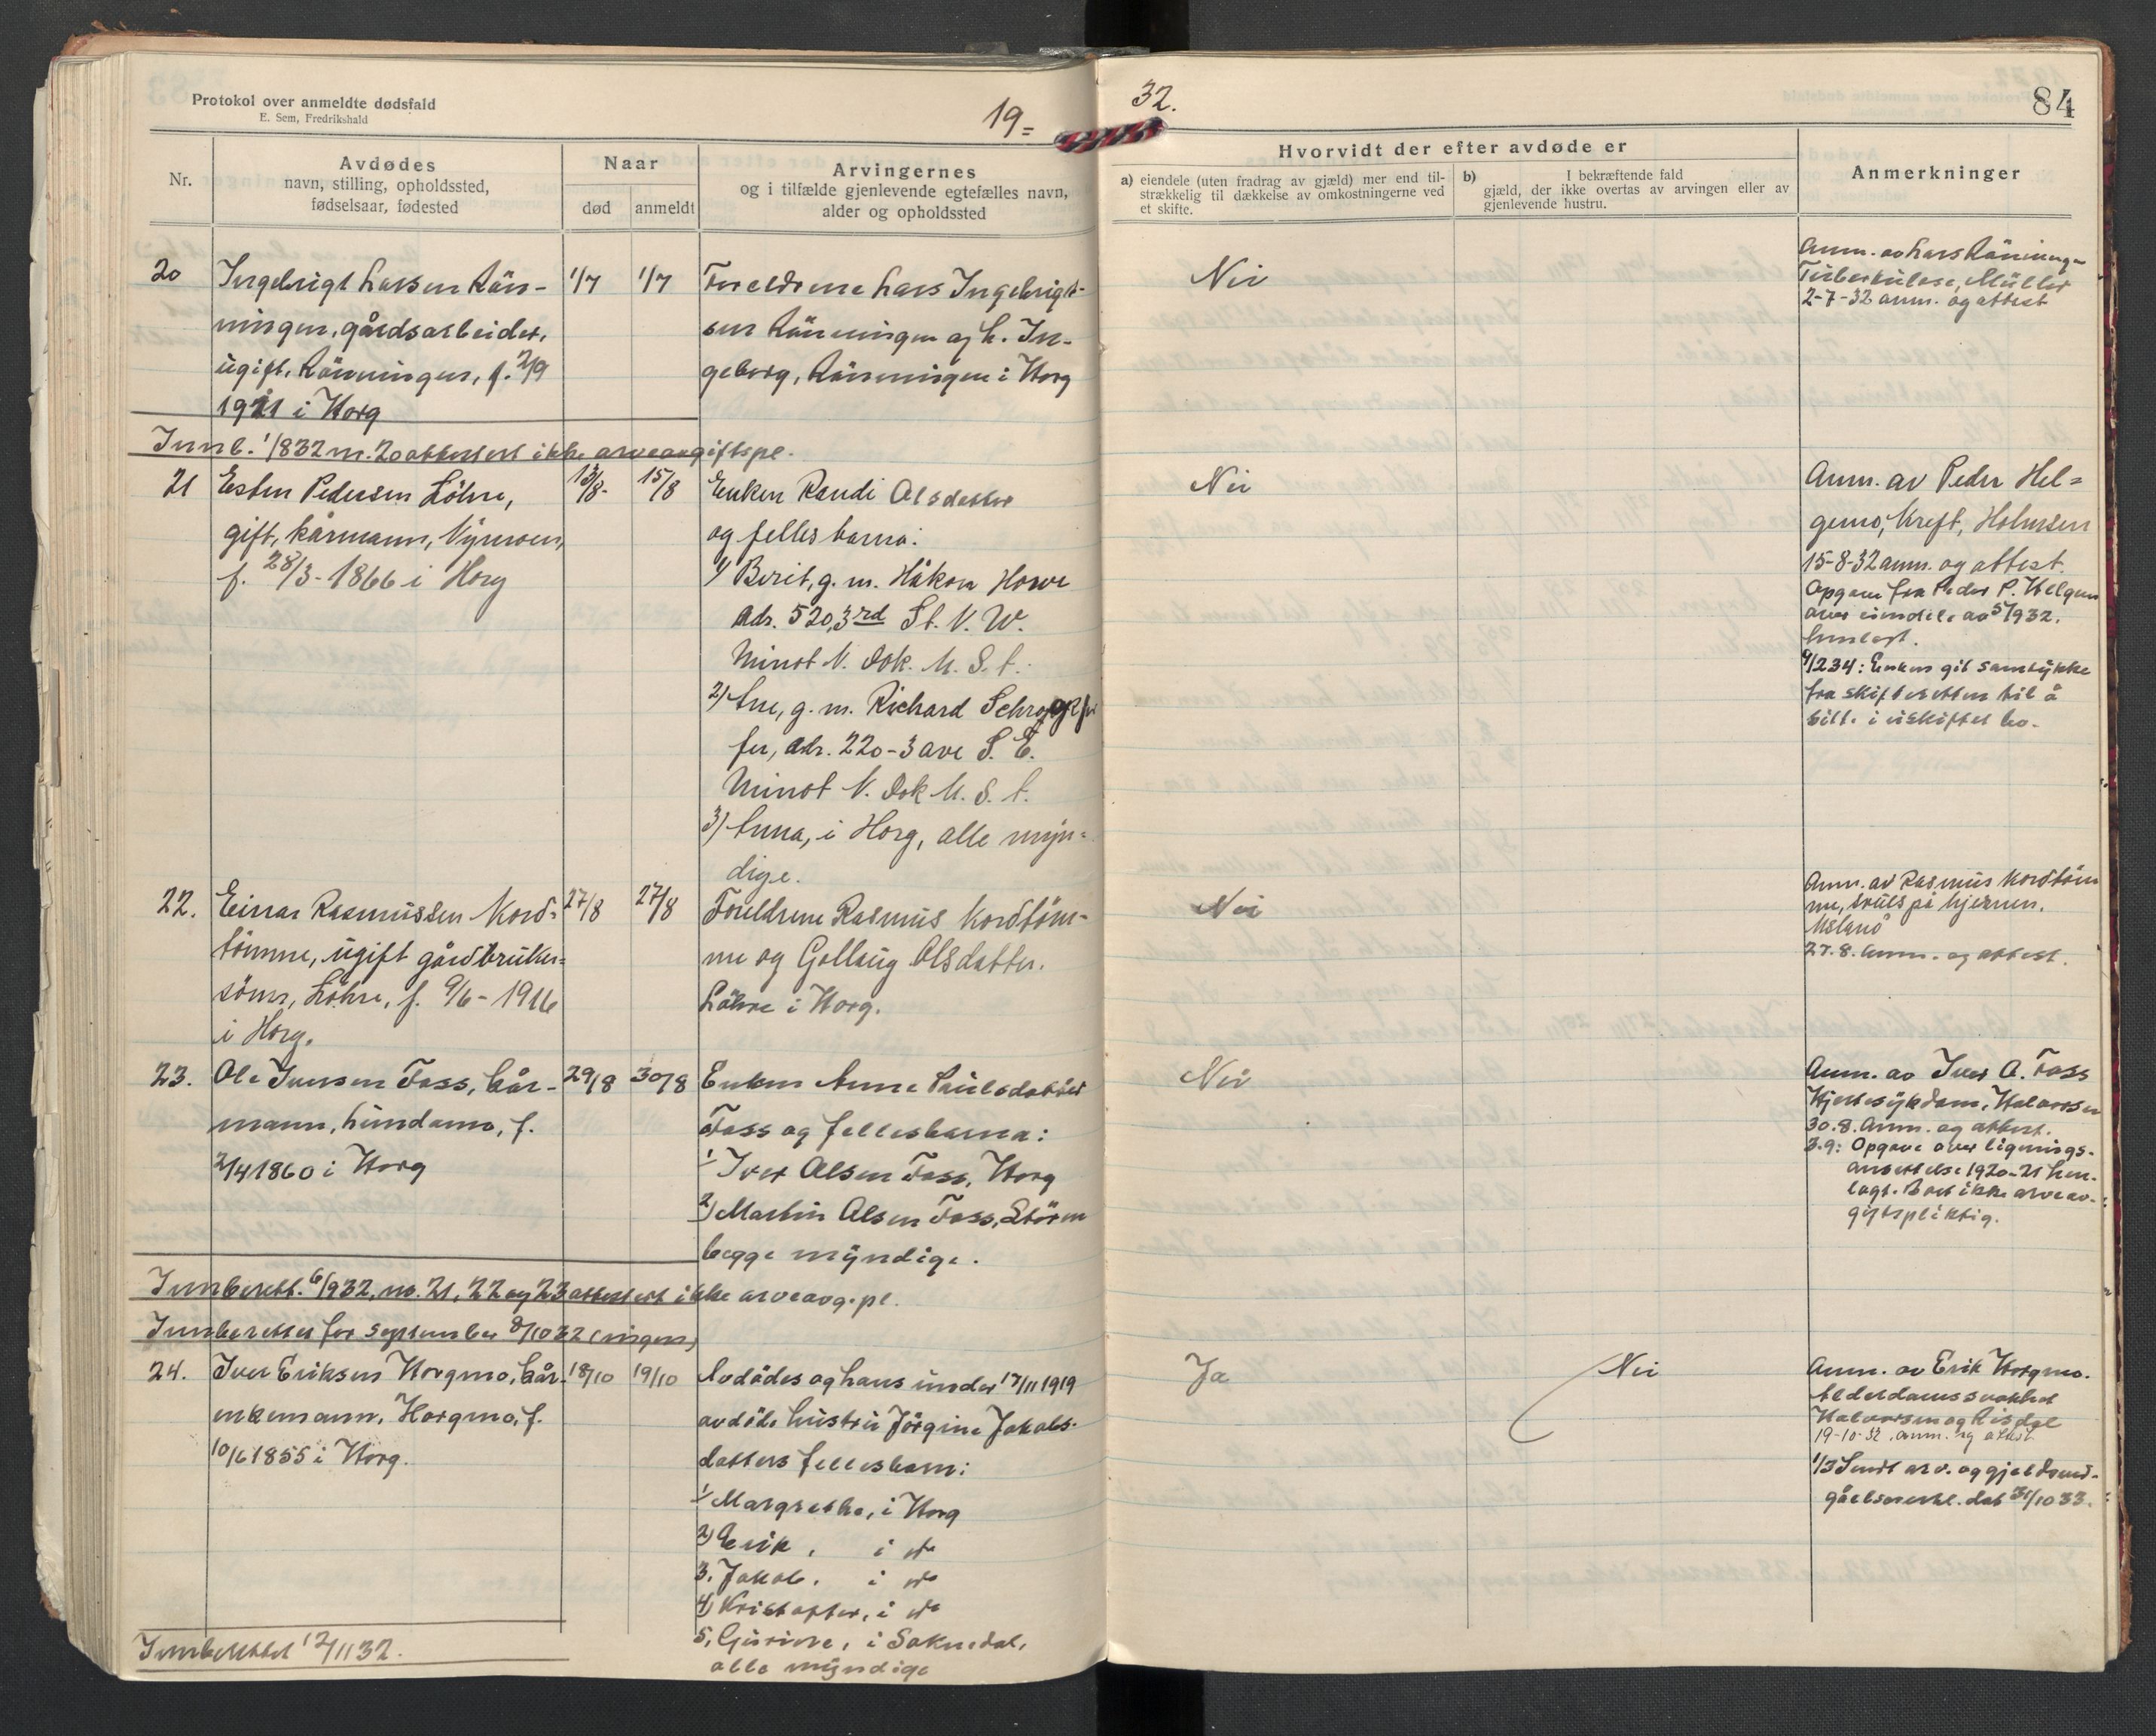 Protokol over anmeldte dødsfald
E. Sem, Fredrikshald
19=
32.
84
Nr.
Avdødes
navn, stilling, opholdssted,
fødselsaar, fødested
Naar
død
anmeldt
Arvingernes
og i tilfælde gjenlevende egtefælles navn,
alder og opholdssted
Hvorvidt der efter avdøde er
a) eiendele (uten fradrag av gjæld) mer end til-
strækkelig til dækkelse av omkostningerne ved
et skifte.
b) I bekræftende fald
gjæld, der ikke overtas av arvingen eller av
gjenlevende hustru.
Anmerkninger
20
Ingebrigt Larsen Rön-
ningen, gårdsarbeider,
ugift, Rönningen, f. 2/9
1911 i Horg
1/7
1/7
Foreldrene Lars Ingebrigt-
sen Rönningen og h. In-
geborg, Rönningen i Horg
Nei
Anm. av Lars Rönningen
Tuberkulose, Müller
2-7-32 anm. og attest
Innb. 1/8 32 nr. 20 attestert ikke arveavgiftspl.
21
Esten Pedersen Löhre,
gift, kårmann, Nymoen,
f. 28/3-1866 i Horg
13/8-
15/8
Enken Randi Olsdatter
og felles barna:
1/ Berit, g. m. Håkon Howe
adr. 520, 3rd St. N. W.
Minot N. Dak. U. S. A.
2/ Ane, g. m. Richard
fer, adr. 220-3 ave S. E.
Minot N. Dak U. S. A.
3) Anna, i Horg, alle myn-
dige.
Nei
Anm. av Peder Hel=
gemo, Kreft, Holmsen
15-8-32 anm. og attest.
Opgave fra Peder P. Helgemo
over eiendele av 5/9 32.
henlagt.
9/2 34: Enken git samtykke
fra skifteretten til å
sitte i uskiftet bo.
22.
Einar Rasmussen Kord-
tömme, ugift gårdbruker=
sönn, Löhre, f. 9/6-1916
i Horg.
27/8
27/8
Foreldrene Rasmus Kordtöm-
me og Gollaug Olsdatter.
Löhre i Horg.
Nei
Anm. av Rasmus Kordtöm
me, svulst på hjernen.
27.8. Anm. og attest.
23.
Ole Iversen Foss, kår-
mann, Lundamo, f.
2/4 1860 i Horg
29/8
30/8
Enken Anne Paulsdatter
Foss og fellesbarna:
1/ Iver Olsen Foss, Horg
2) Martin Olsen Foss, Stören
begge myndige.
Nei
Anm. av Iver O. Foss
Hjertesykdom, Halvorsen
30.8. Anm. og attest.
3.9: Opgave over lignings-
ansettelse 1920-21 hen-
lagt. Boet ikke arveav-
giftspliktig.
Innberett. 6/9 32, nr. 21, 22 og 23 attestert ikke arveavg.pl.
Innberettet for september 8/10 32 (ingen)
24.
Iver Eriksen Horgmo, kår-
enkemann, Horgmo, f.
10/6 1855 i Horg.
18/10
19/10
Avdödes og hans under 17/11 1919
avdöde hustru Jörgine Jakobs-
datters fellesbarn:
1/ Margrethe, i Horg
2) Erik, i do
3. Jakob, i do
4) Kristoffer, i do
5, Gurine, i Soknedal,
alle myndige
Ja
Nei
Anm. av Erik Horgmo.
Alderdomssvakhet
Halvorsen og Risdal
19-10-32. anm. og attest
1/3 Sendt arv. og gjeldsved-
gåelseserkl. dat 31/10 33.
Innberettet 12/11 32.